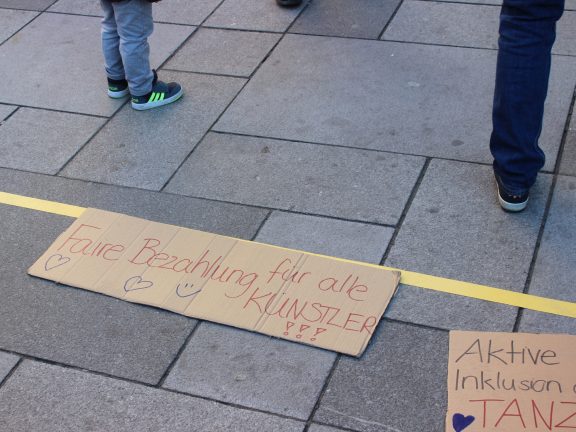 Faire Bezahlung für alle
KÜNSTLER
!?!
Aktive
Inklusion
TANZ